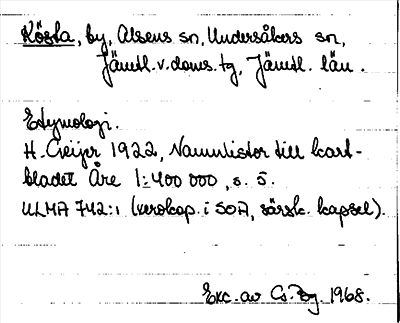 Kösta, by, Alsens sn, Undersåkers sn,
Jämtl. v. doms. tg, Jämtl. län.
Etymologi.
H. Geijer 1922, Namnlistor till kart-
bladet Åre 1:400 000, s. 5.
ULMA 742:1 (xerokop. i SOA, särsk. kapsel).
Exc. av 1968.